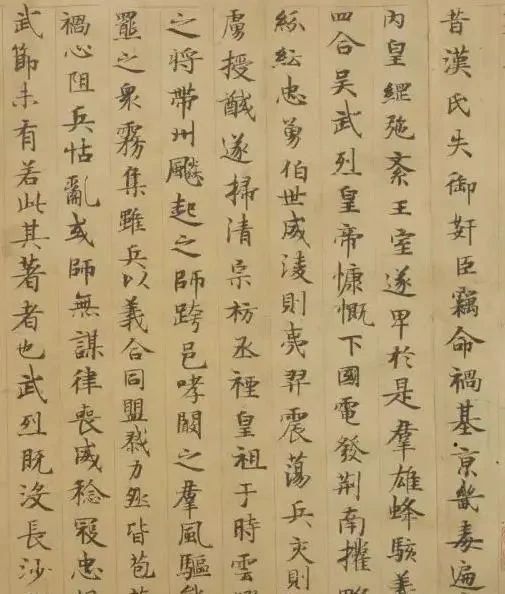 昔漢氏失御奸臣竊命禍基京畿毒遍
内皇綱弛紊王室遂卑於是羣雄蜂駭義
四合吴武烈皇帝慷慨下國電發荆南攉
紛紜忠勇伯世威淩則夷羿震蕩兵交則
虜授馘遂掃清宗祊丞禋皇祖于時雲
之將帶州飈起之師跨邑哮闞之羣風驅
羆之衆霧集雖兵以義合同盟戮力然皆苞
禍心阻兵怙亂或師無謀律喪威稔寇忠
武節未有若此其著者也武烈既沒長沙